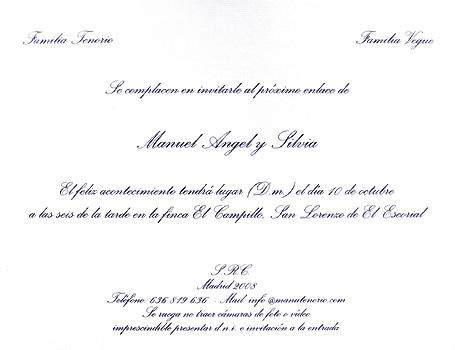 Familia Tenorio Familia Vegue
Se complacen en invitarle al próximo enlace de
Manuel Angel y Silvia
El feliz acontecimiento tendrá lugar (D.m.) el día 10 de octubre
a las seis de la tarde en la finca El Campillo. San Lorenzo de El Escorial
S.R.C.
Madrid 2008
Teléfono 636 819 636 - Mail: info@manutenorio.com
Se ruega no traer cámaras de foto o vídeo
imprescindible presentar d.n.i. e invitación a la entrada